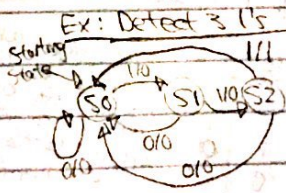 Ex: Detect 3 1's
Starting
state
1/1
1/0
S0
S1
1/0
S2
0/0
0/0
0/0